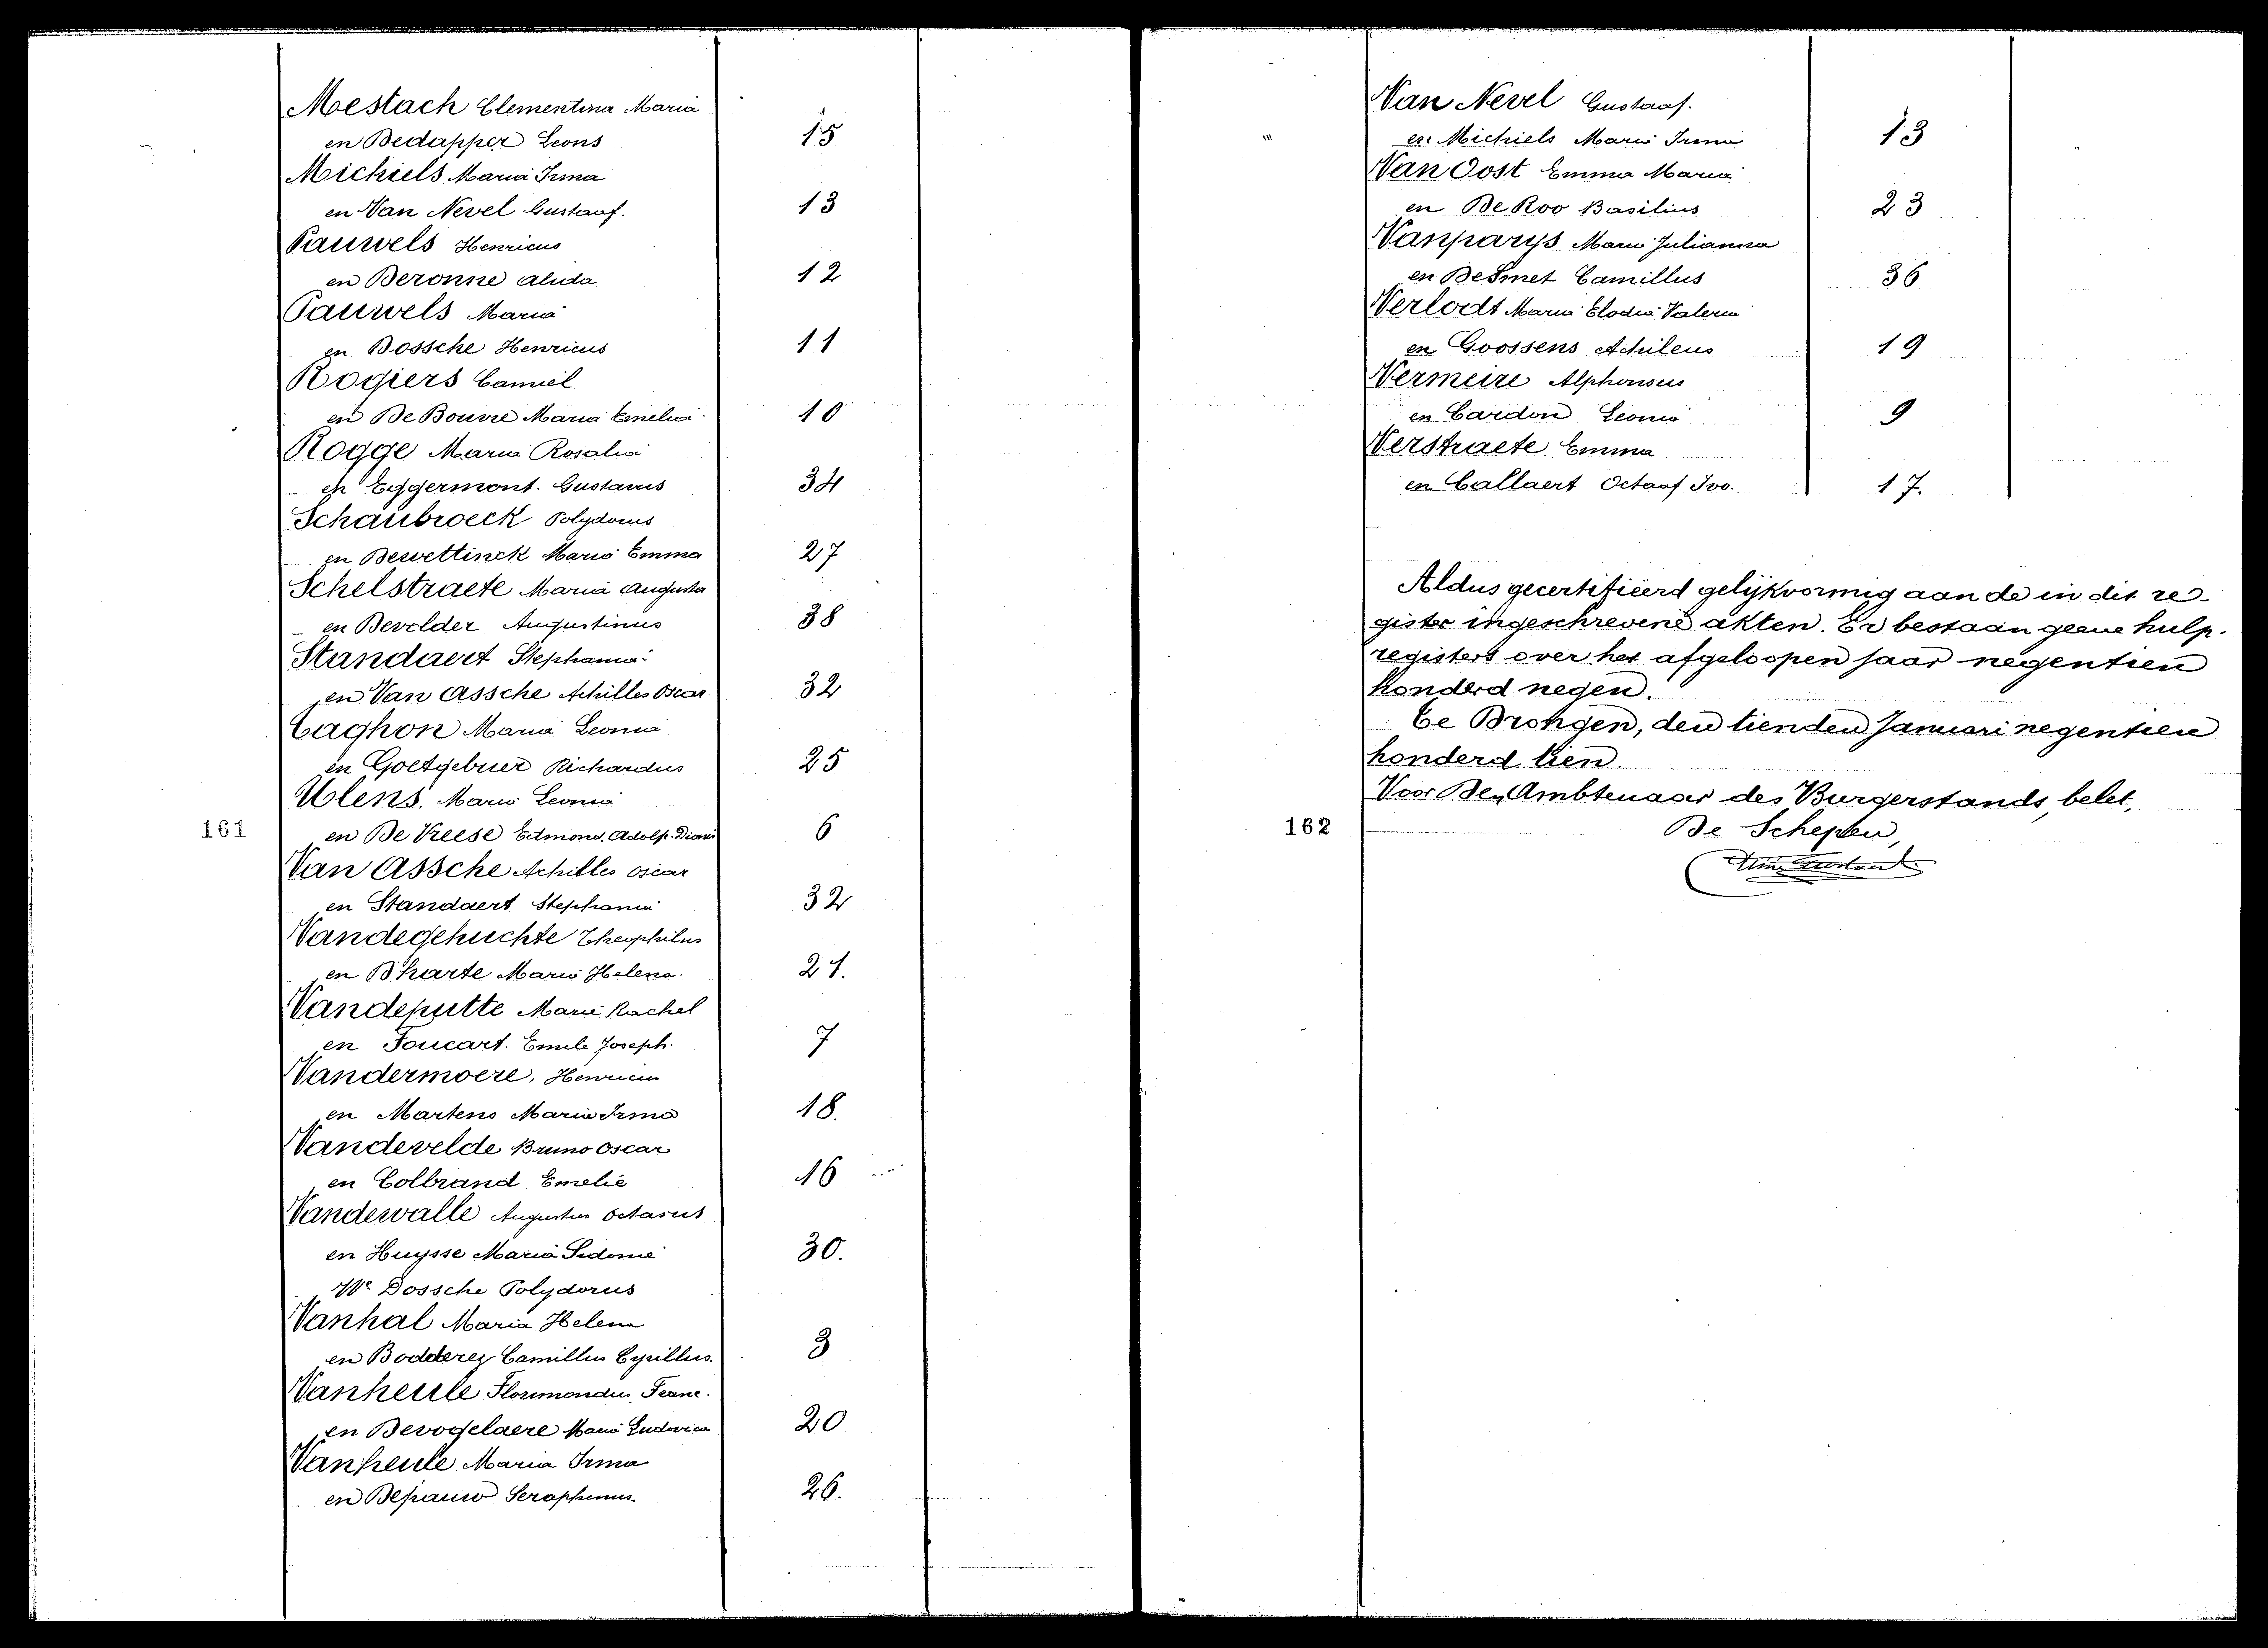 Mestach Clementina Maria
en Dedapper Leons 15
Michiels Maria Irma
en Van Nevel Gustaaf. 13
Pauwels Henricus
en Deronne Alida 12
Pauwels Maria
en Dossche Henricus 11
Rogiers Camiel
en De Bouvre Maria Emelia 10
Rogge Maria Rosalia
en Eggermont. Gustavus 34
Schaubroeck Polydorus
en Dewettinck Maria Emma 27
Schelstraete Maria Augusta
en Devolder Augustinus 38
Standaert Stephania
en Van Assche Achilles Oscar. 32
Taghon Maria Leonia
en Goetgebuer Richardus 25
Ulens. Maria Leonia
161 en De Vreese Edmond. Adolf. Dionis 6
Van Assche Achilles Oscar
en Standaert Stephania 32
Vandegehuchte Theophilus
en D'harte Maria Helena. 21.
Vandeputte Marie Rachel
en Foucart. Emile Joseph. 7
Vandermoere, Henricus
en Martens Maria Irma 18.
Vandevelde Bruno Oscar
en Colbrand Emelie 16
Vandewalle Augustus Octavus
en Huysse Maria Sidonie 30.
We Dossche Polydorus
Vanhal Maria Helena
en Dodderey Camillus Cyrillus. 3
Vanheule Florimondus, Franc.
en Devogelaere Maria Ludovica 20
Vanheule Maria Irma
en Depauw Seraphinus. 26.
Van Nevel Gustaaf.
en Michiels Maria Irma 13
Van Oost Emma Maria
en De Roo Basilius 23
Vanparys Maria Julianna
en Desmet Camillus 36
Verlodt Maria Elodia Valeria
en Goossens Achileus 19
Vermeire Alphonsus
en Cardon Leonia 9
Verstraete Emma
en Callaert Octaaf Ivo. 17.
Aldus gecertifieerd gelijkvormig aan de in dit re-
gister ingeschrevene akten. Er bestaan geene hulp-
registers over het afgeloopen jaar negentien
honderd negen.
Te Drongen, den tienden Januari negentien
honderd tien.
Voor Den Ambtenaar des Burgerstands, belet,
162 De Schepen,